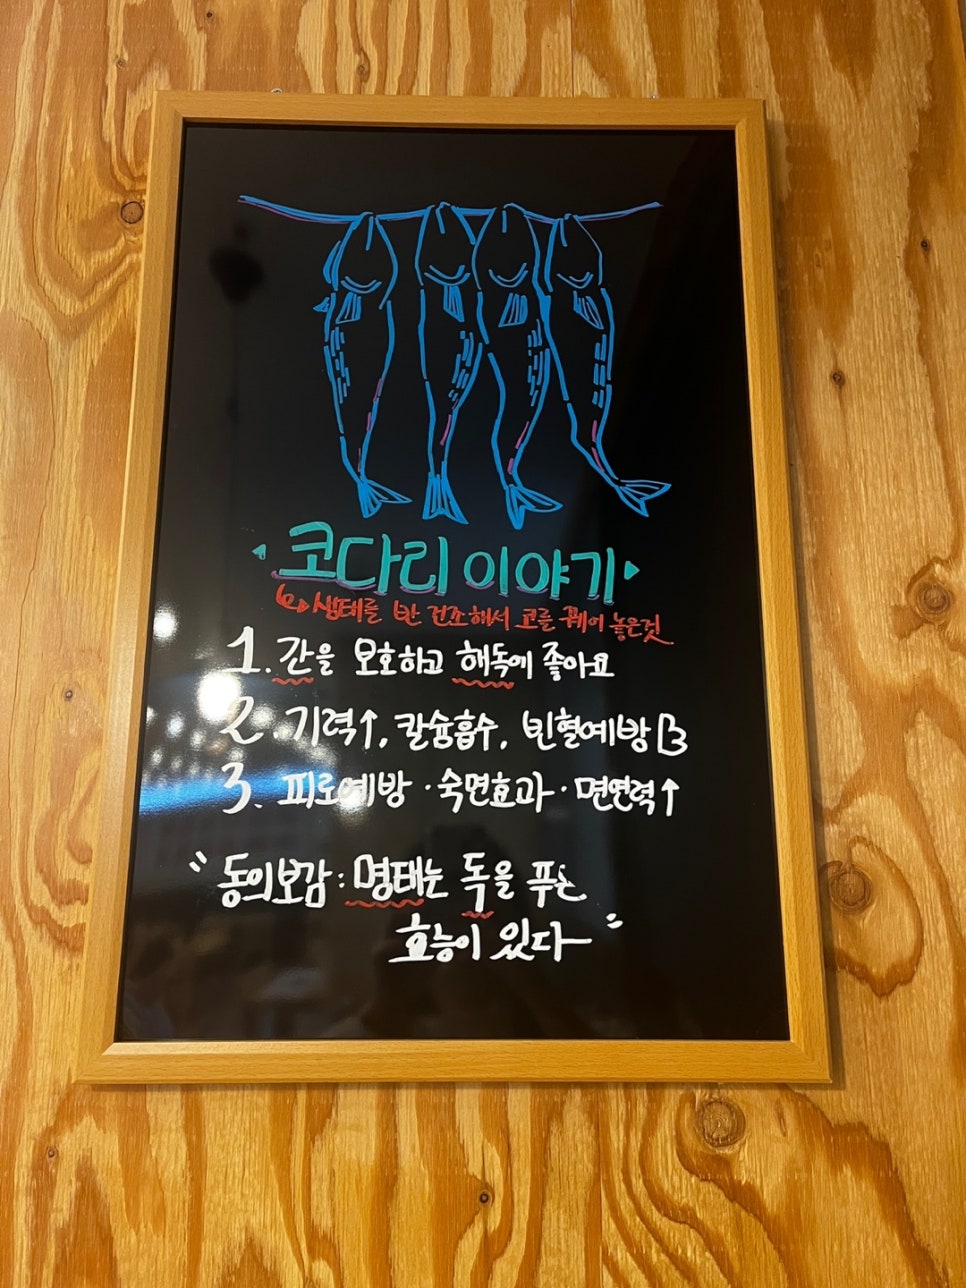 코다리 이야기
생태를 반 건조해서 코를 꿰어 놓은것
1. 간을 보호하고 해독에 좋아요
2. 기력↑, 칼슘흡수, 빈혈예방
3. 피로예방 · 숙면효과 · 면연력↑
"동의보감 : 명태는 독을 푸는
효능이 있다"